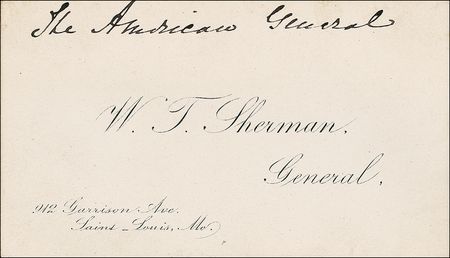 The American General
W. T. Sherman.
General.
912 Garrison Ave.
Saint-Louis, Mo.